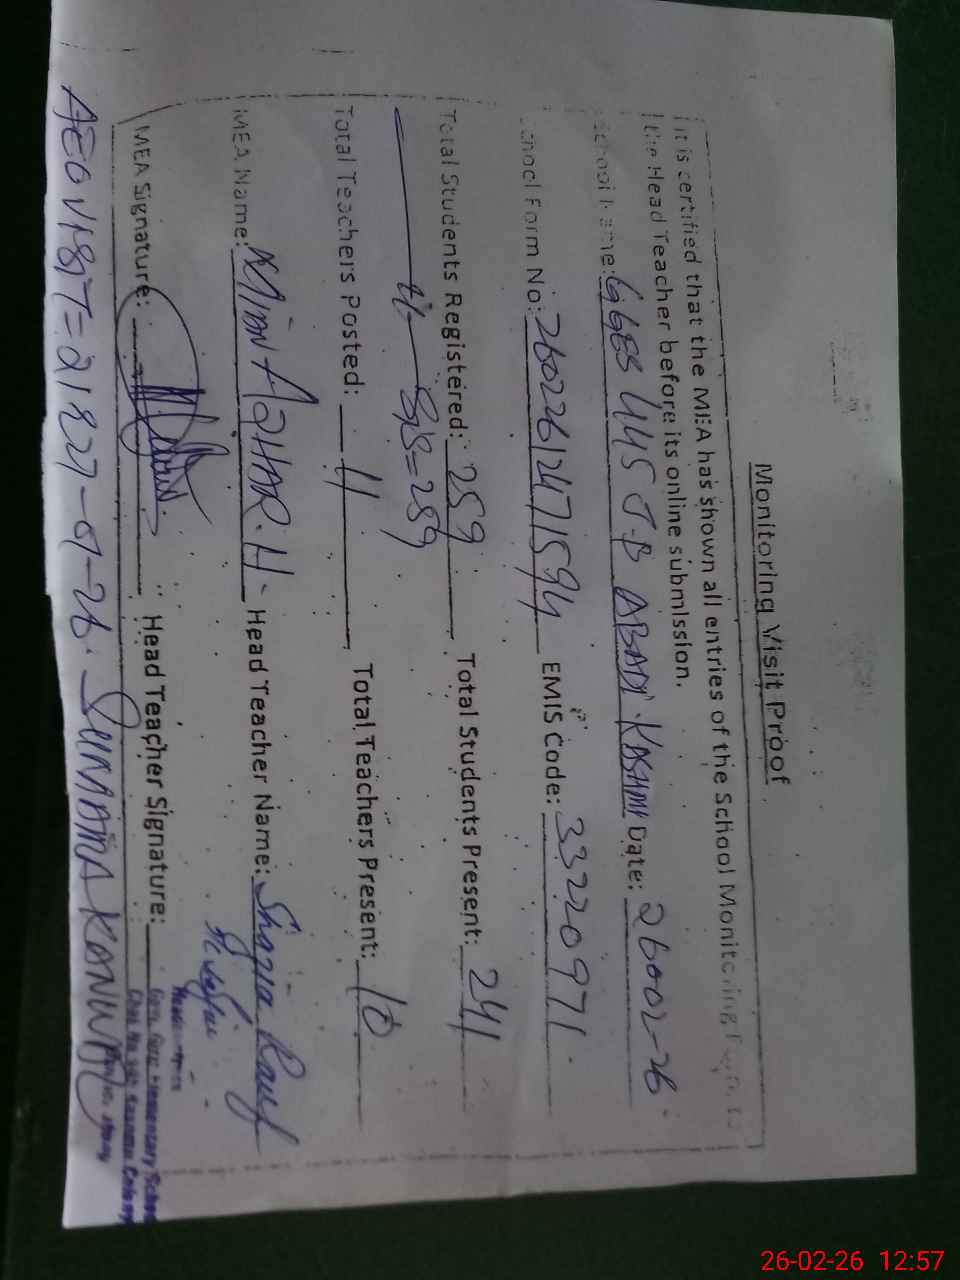 Monitoring Visit Proof
It is certified that the MEA has shown all entries of the School Monitoring to
the Head Teacher before its online submission.
School Name: GGES 445 J.B ABADI KASHMI Date: 26-02-26
School Form No: 26022612471594 EMIS Code: 33220971
Total Students Registered: 259 Total Students Present: 241
259
Total Teachers Posted: 11 Total Teachers Present: 10
MEA Name: MIAN AZHAR.H Head Teacher Name: Shazia Rauf
MEA Signature: Head Teacher Signature:
Headmistress
Govt. Girls Elementary School
AEO VISIT = 2/ 27-1-26. SUMAMA KANWAL
26-02-26 12:57